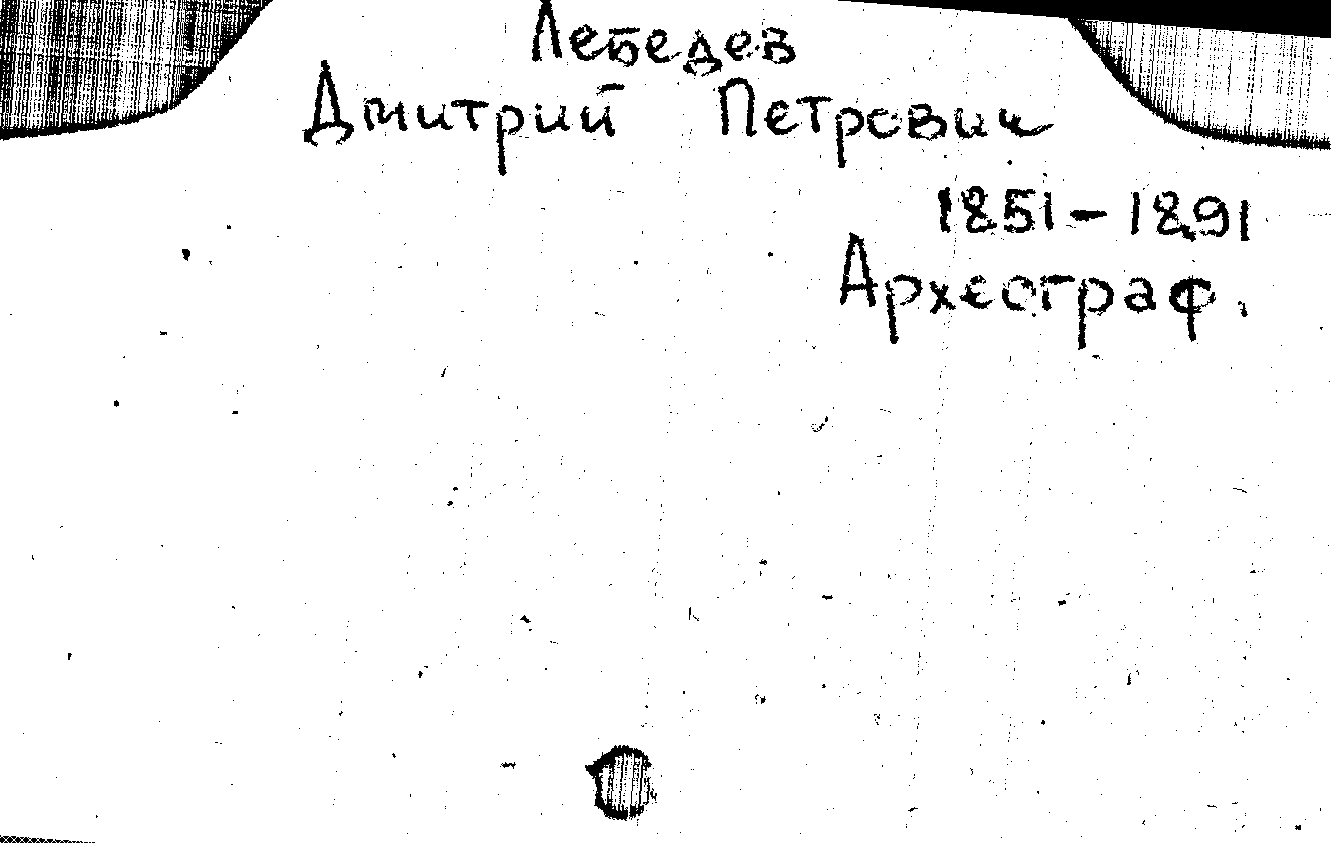 Лебедев
Дмитрий Петрович
1851-1891
Археограф.